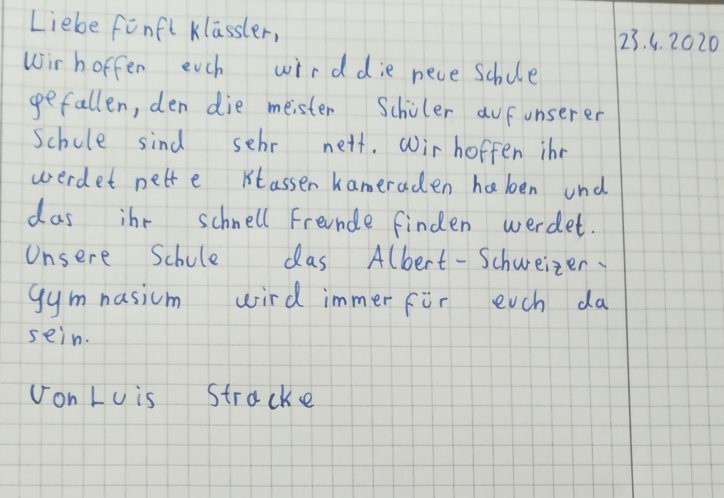 Liebe fünft klässler,
23.4.2020
Wir hoffen euch wird die neue Schule
gefallen, den die meisten Schüler auf unserer
Schule sind sehr nett. Wir hoffen ihr
werdet nette Klassenkameraden haben und
das ihr schnell Freunde finden werdet.
Unsere Schule das Albert-Schweizer-
Gymnasium wird immer für euch da
sein.
Von Luis Stracke